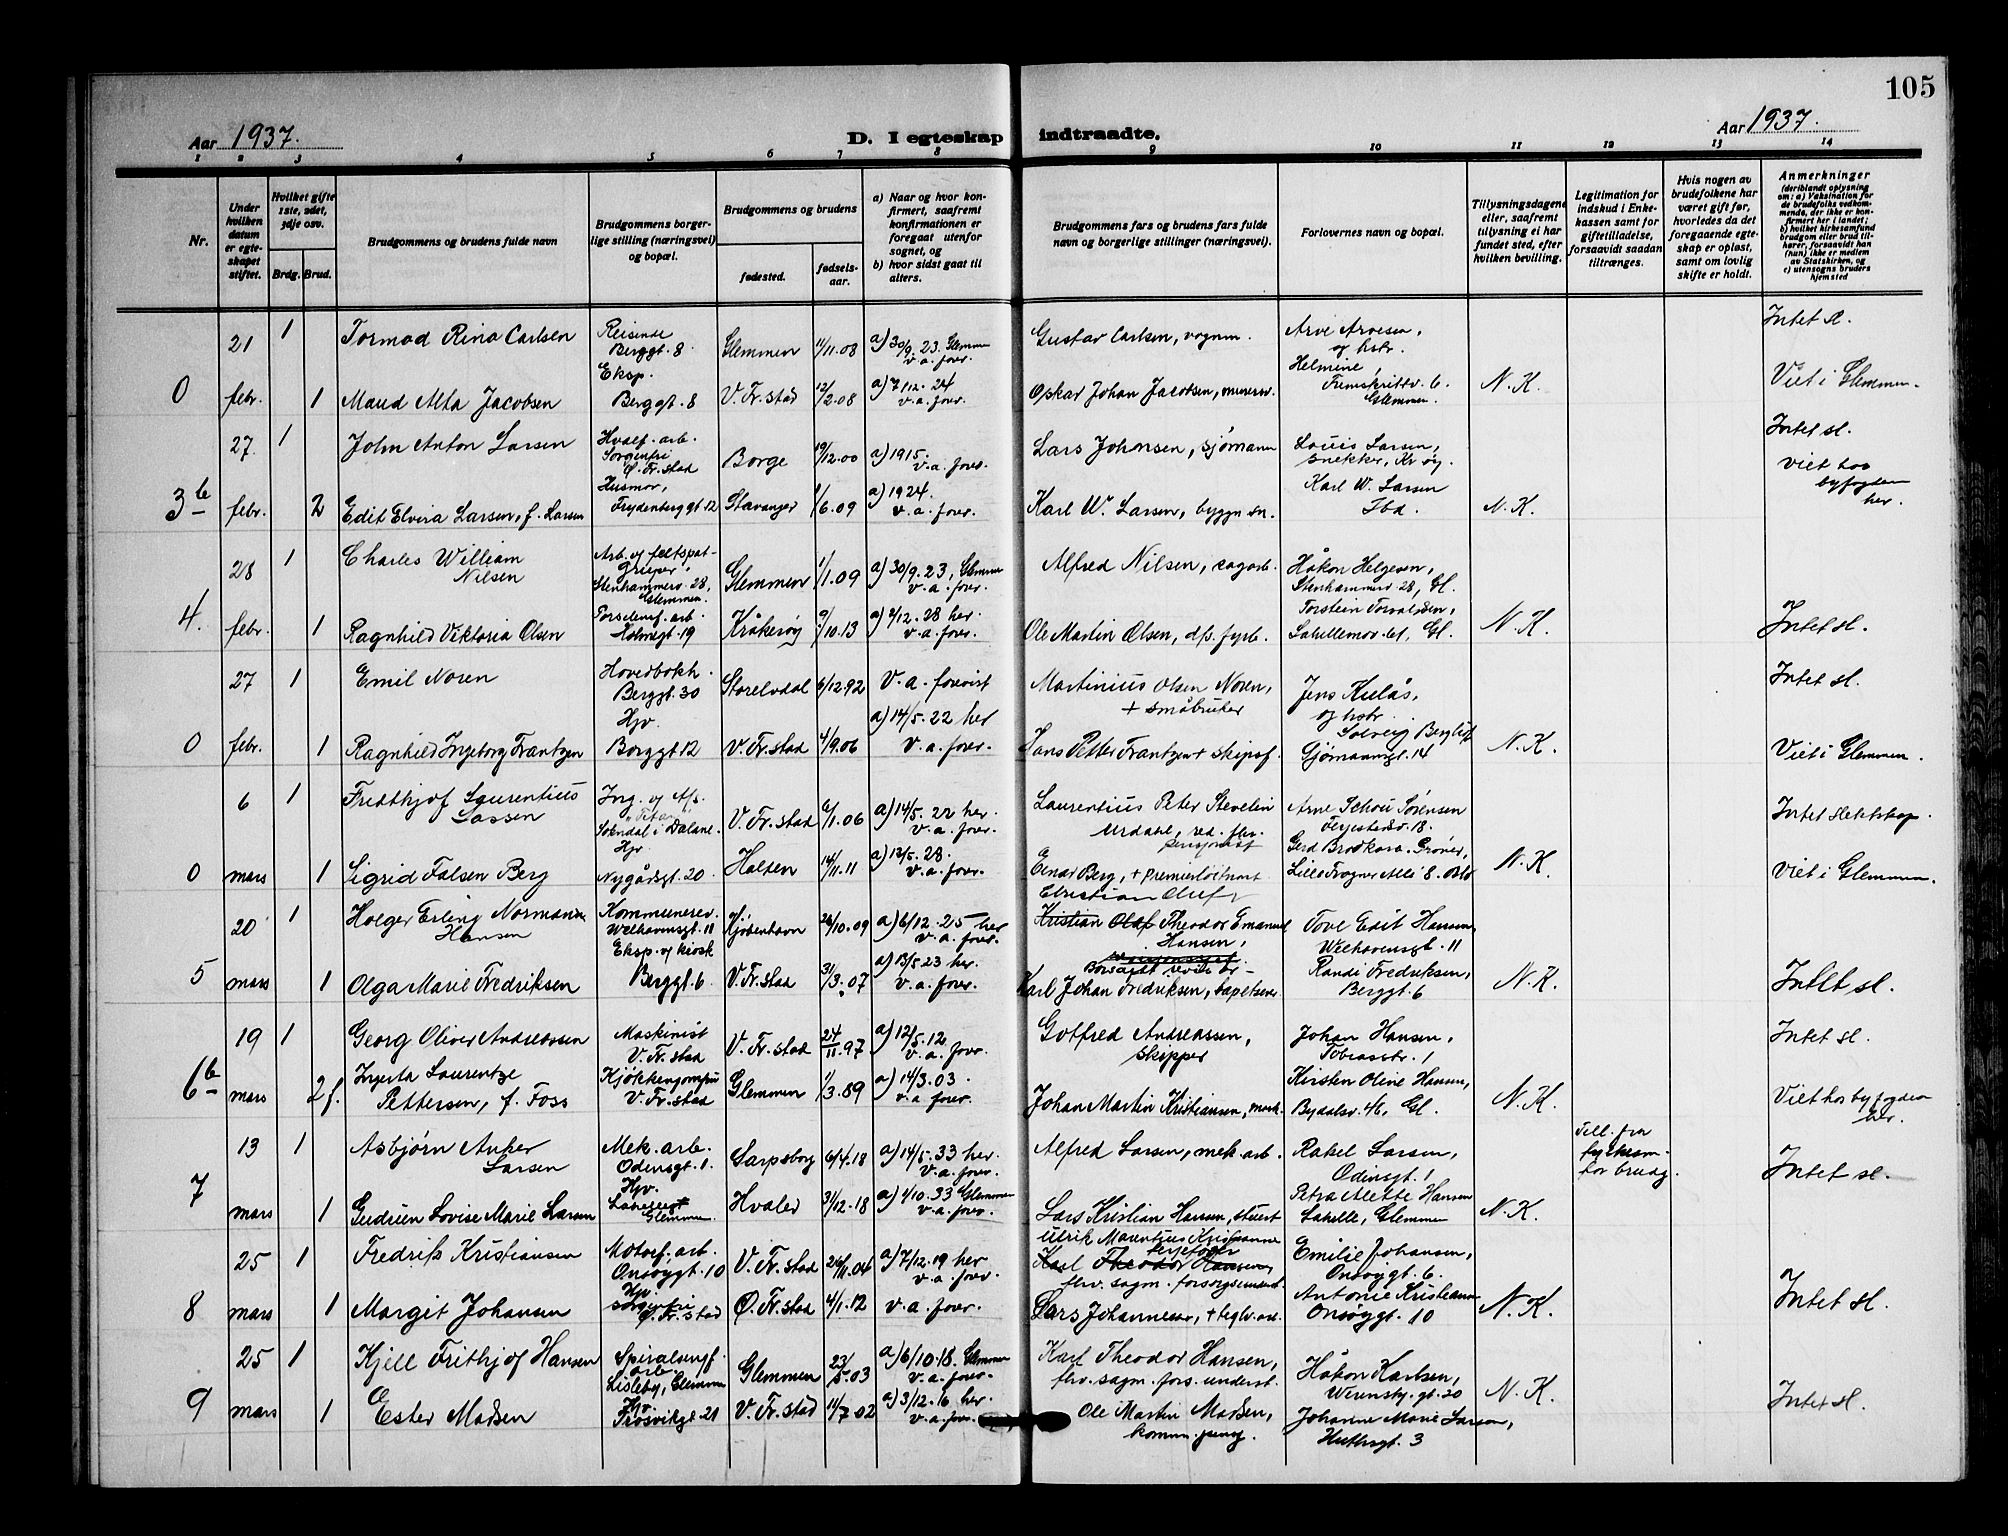 105
Aar 1937.
D. I egteskap indtraadte.
Aar 1937.
1 2 3 4 5 6 7 8 9 10 11 12 13 14
Nr.
Under hvilken datum er egteskapet stiftet.
Hvilket gifte 1ste, 2det, 3dje osv.
Brdg. Brud.
Brudgommens og brudens fulde navn
Brudgommens borgerlige stilling (næringsvei) og bopæl.
Brudgommens og brudens
fødested.
fødselsaar.
a) Naar og hvor konfirmert, saafremt konfirmationen er foregaat utenfor sognet, og
b) hvor sidst gaat til alters.
Brudgommens fars og brudens fars fulde navn og borgerlige stillinger (næringsvei).
Forlovernes navn og bopæl.
Tillysningsdagene eller, saafremt tillysning ei har fundet sted, efter hvilken bevilling.
Legitimation for indskud i Enkekassen samt for giftetilladelse, forsaavidt saadan tiltrænges.
Hvis nogen av brudefolkene har været gift før, hvorledes da det foregaaende egteskap er opløst, samt om lovlig skifte er holdt.
Anmerkninger
(deriblandt oplysning om: a) Vaksination for de brudefolks vedkommende, der ikke er konfirmert her i landet; b) hvilket kirkesamfund brudgom eller brud tilhører, forsaavidt han (hun) ikke er medlem av Statskirken, og c) utensogns bruders hjemsted
21 1 Tormod Rino Carlsen Reisende Berggt. 8 Glemmen 11/11.08 a) 30/9.23. Glemmen v.a. fover. Gustav Carlsen, vognm. Arve Arvesen, og hstr. Intet sl.
0 febr. 1 Maud Alta Jacobsen Eksp. Berggt. 8 V. Fr.stad 12/2.08 a) 7/12.24 v.a. fover. Oskar Johan Jacobsen, murerm. Helmine, Glemmen. N.K. Viet i Glemmen.
27. 1 John Anton Larsen Hvalf. arb. Sorgenfri Ø. Fr.stad Borge 19/12.00 a) 1915. v.a. fover. Lars Johansen, sjømann Louis Larsen, snekker, Kr.øy. Intet sl.
3b febr. 2 Edit Elvira Larsen, f. Larsen Husmor, Frydenberggt. 12 Stavanger 1/6.09 a) 1924. v.a. fover. Karl W. Larsen, byggn.sn. Karl W. Larsen Ibd. N.K. viet hos byfogden her.
28 1 Charles William Nilsen Arb. og feltspat- Stenhammerv. 28, Glemmen. Glemmen 1/1.09 a) 30/9.23, Glemmen v.a. fover. Alfred Nilsen, sagarb. Håkon Helgesen, Stenhammerv 28, Gl.
4. febr. 1 Ragnhild Viktoria Olsen Porselensf. arb. Holmegt. 19 Kråkerøy 9/10.13 a) 2/12.28 her. v.a. fover. Ole Martin Olsen, dfs. fyrb. Torstein Torvaldsen, Gl. N.K. Intet sl.
27 1 Emil Noren Hovedbokh. Berggt. 30 Storelvdal 6/12.92 v.a. forevist Martinius Olsen Noren, + småbruker Jens Hulås, og hstr. Intet sl.
0 febr. 1 Ragnhild Ingeborg Frantzen Hjv. Borggt. 12 V. Fr.stad 4/9.06 a) 14/5.22 her v.a. fover. Hans Petter Frantzen + skipsf. Solveig Berglif Sjømannsgt. 14 N.K. Viet i Glemmen.
6 1 Fridthjof Laurentius Lassen Ing. og Sokndal i Dalane. V. Fr.stad 6/1.06 a) 14/5.22 her v.a. fover. Laurentius Peter Stevelin Urdahl, pensjonist Arne Schou Sørensen Ferjestedsv. 18. Intet slektskap.
0 mars 1 Sigrid Falsen Berg Hjv. Nygårdsgt. 20 Halden 14/11.11 a) 13/5.28. v.a. fover. Einar Berg, + premierløitnant Gerd Brodkorb. Grøner, Lille Frogner Alle 8. Oslo N.K. Viet i Glemmen.
20 1 Holger Erling Normann Hansen Kommunerev. Welhavensgt. 11 Kjøbenhavn 26/10.09 a) 6/12.25 her v.a. fover. Christian Oluf Kristian Olaf Theodor Emanuel Hansen, Tove Edit Hansen, Welhavensgt. 11
5 mars 1 Olga Marie Fredriksen Eksp. og kiosk Berggt. 6 V. Fr.stad 31/3.07 a) 13/5.23 her. v.a. fover. Karl Johan Fredriksen, tapetserer Randi Fredriksen, Berggt. 6 N.K. Intet sl.
19 1 Georg Oliver Andreassen Maskinist V. Fr.stad V. Fr.stad 24/11.97 a) 12/5.12 v.a. fover. Gotfred Andreassen, skipper Johan Hansen, Tobiasstr. 1 Intet sl.
6b mars 2 f. Ingerta Laurentze Pettersen, f. Foss V. Fr.stad Glemmen 1/3.89 a) 14/3.03. v.a. fover. Johan Martin Kristiansen, mask. Kirsten Oline Hansen, Bydalsv. 46, Gl. N.K. Viet hos byfogden her.
13 1 Asbjørn Anker Larsen Mek. arb. Odinsgt. 1. Sarpsborg 6/4.18 a) 14/5.33 her. v.a. fover. Alfred Larsen, mek. arb. Rakel Larsen, Odinsgt. 1 Till. fra fylkesm. for brudg. Intet sl.
7 mars 1 Gudrun Lovise Marie Larsen Hjv. Glemmen. Hvaler 31/12.18 a) 1/10.33 Glemmen v.a. fover. Lars Kristian Hansen, stuert Petra Alette Hansen Lahelle, Glemmen N.K.
25 1 Fredrik Kristiansen Motorf. arb. Onsøygt. 10 V. Fr.stad 26/11.04 a) 7/12.19 her v.a. fover. Ulrik Mauritius Kristiansen Karl Theodor Hansen, fhv. sagm. forsorgsunderst. Emilie Johansen, Onsøygt. 6.
8 mars 1 Margit Johansen Hjv. Sorgenfri Ø. Fr.stad Ø. Fr.stad 4/1.12 v.a. fover. Lars Johannesen, + teglv. arb. Antonie Kristiansen Onsøygt. 10 N.K. Intet sl.
25 1 Kjell Frithjof Hansen Spiralsengf. arb. Lisleby, Glemmen Glemmen 23/5.03 a) 6/10.18. Glemmen v.a. fover. Karl Theodor Hansen, fhv. sagm. fors. underst. Håkon Karlsen, Werenskj. gt. 20
9 mars 1 Ester Madsen Hjv. Trosvikgt. 21 V. Fr.stad 11/7.02 a) 3/12.16 her. v.a. fover. Ole Martin Madsen, Johanne Marie Larsen, Huthsgt. 3 N.K. Intet sl.